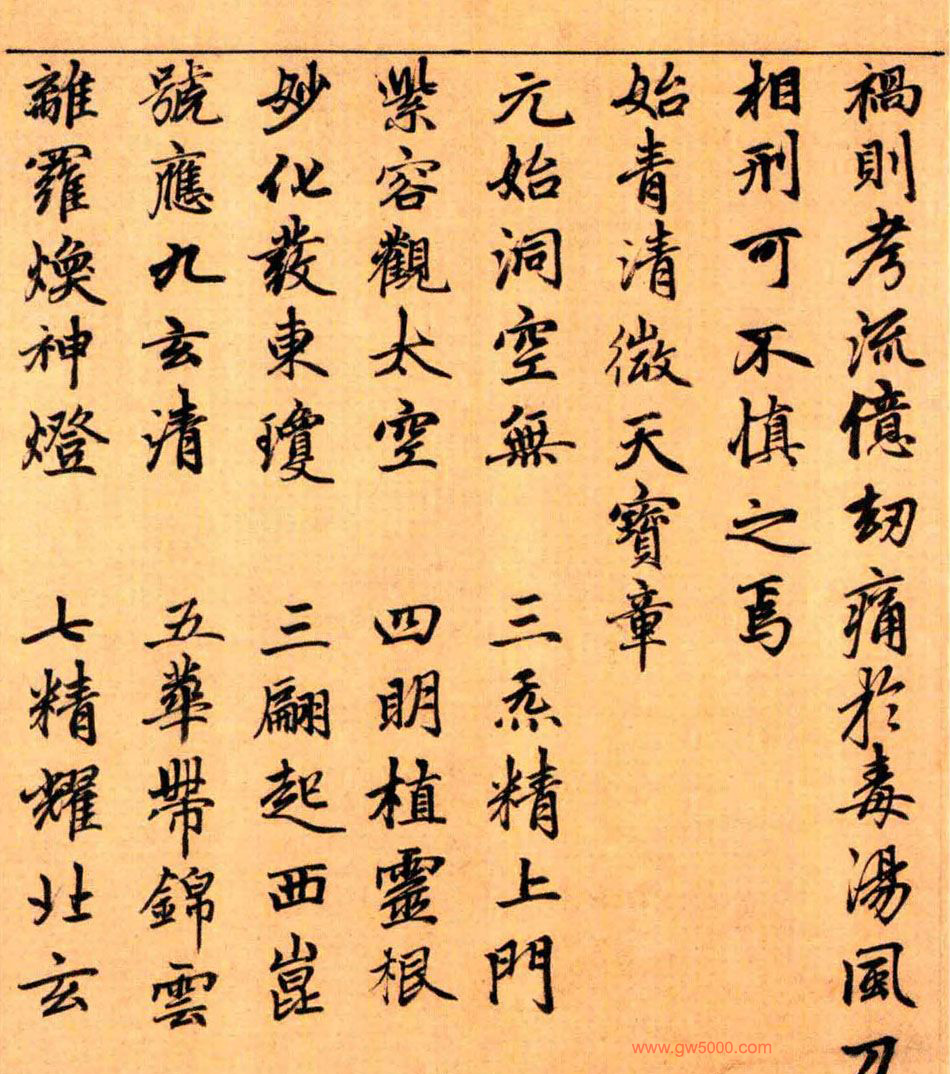 禍則考流億劫痛於毒湯風刀
相刑可不慎之焉
始青清微天寶章
元始洞空無 三炁精上門
紫容觀太空 四明植靈根
妙化發東瓊 三翮起西崑
號應九玄清 五華帶錦雲
離羅煥神燈 七精耀北玄
www.gw5000.com